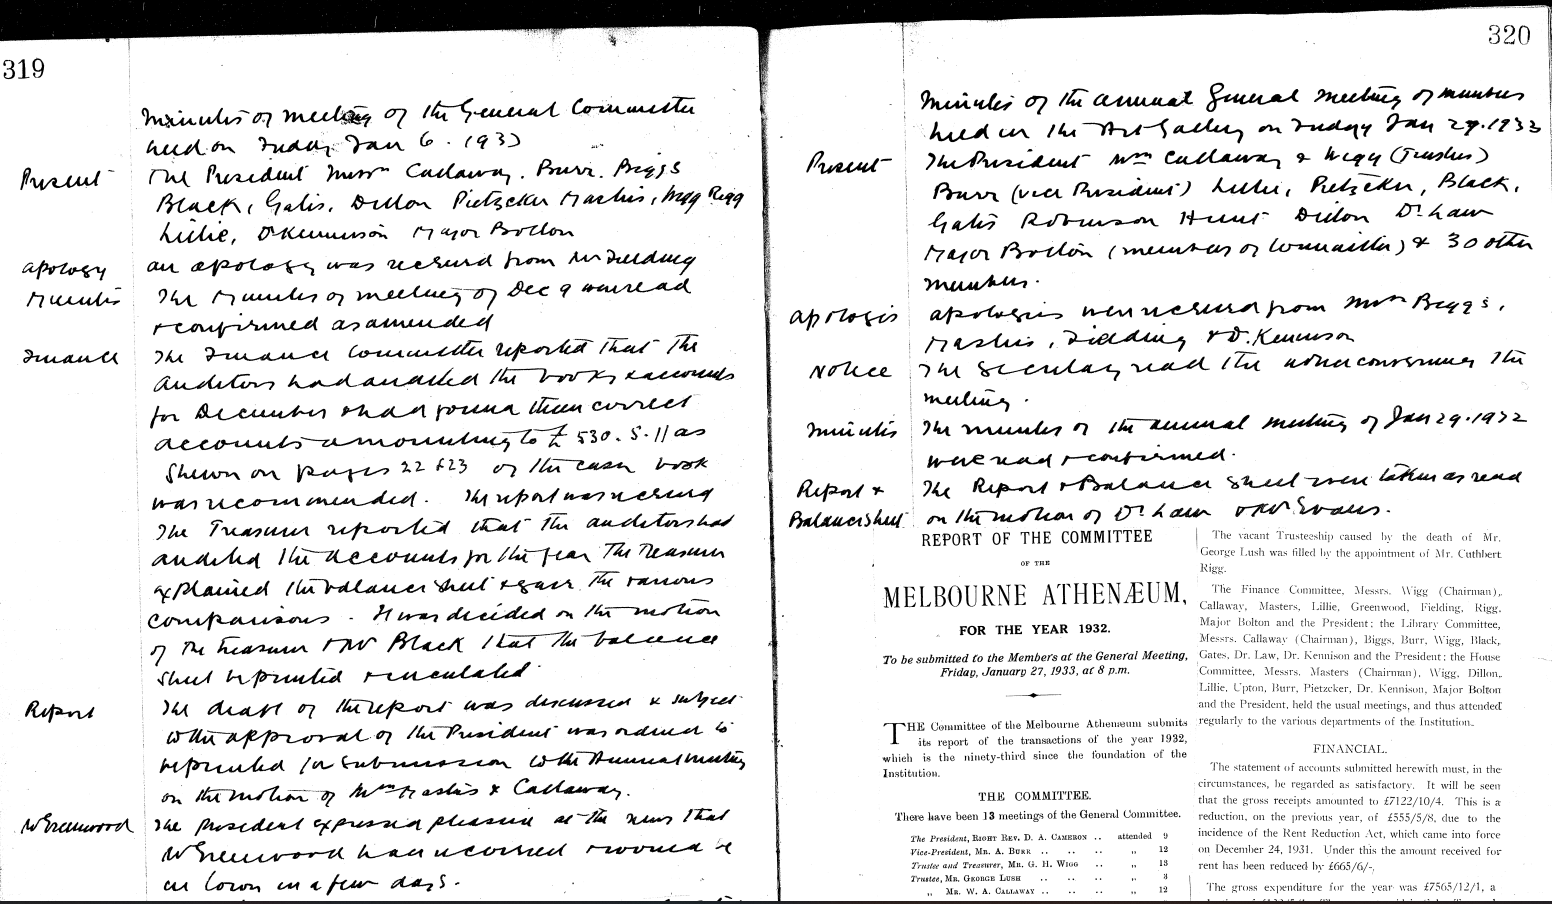 319
Minutes of meeting of the General Committee
held on Friday Jan 6. 1933
Present
The President Messrs Callaway. Burr. Biggs
Black, Gates, Dillon Pietzcker Masters, Wigg Rigg
Lillie, Dr Kennison Major Bolton
Apology
an apology was received from Mr Fielding
Minutes
The Minutes of meeting of Dec 9 were read
& confirmed as amended
Finance
The Finance Committee reported that the
Auditors had audited the books & accounts
for December & had found them correct
accounts amounting to £530.5.11 as
shewn on pages 22 & 23 of the cash book
was recommended. The report was received
The Treasurer reported that the auditors had
audited the accounts for the year The Treasurer
explained the balance sheet & gave the various
comparisons. It was decided on the motion
of the Treasurer & Mr Black that the balance
sheet be printed & circulated
Report
The draft of the report was discussed & subject
to the approval of the President was ordered to
be printed for submission to the Annual Meeting
on the motion of Messrs Masters & Callaway.
Mr Greenwood
The President expressed pleasure at the news that
Mr Greenwood had recovered & would be
in town in a few days.
320
Minutes of the annual General Meeting of members
held in the Art Gallery on Friday Jan 27. 1933
Present
The President Messrs Callaway & Wigg (Trustees)
Burr (vice President) Lillie, Pietzcker, Black,
Gates Robinson Hunt Dillon Dr Law
Major Bolton (members of Committee) & 30 other
members.
Apologies
apologies were received from Messrs Biggs,
Masters, Fielding & Dr. Kennison
Notice
The Secretary read the notice convening the
meeting.
Minutes
The minutes of the annual meeting of Jan 29. 1932
were read & confirmed.
Report &
Balance Sheet
The Report & Balance Sheet were taken as read
on the motion of Dr Law & Mr Evans.
REPORT OF THE COMMITTEE
OF THE
MELBOURNE ATHENÆUM,
FOR THE YEAR 1932.
To be submitted to the Members at the General Meeting,
Friday, January 27, 1933, at 8 p.m.
THE Committee of the Melbourne Athenæum submits
its report of the transactions of the year 1932,
which is the ninety-third since the foundation of the
Institution.
THE COMMITTEE.
There have been 13 meetings of the General Committee.
The President, RIGHT REV. D. A. CAMERON .. attended 9
Vice-President, MR. A. BURR .. .. .. „ 12
Trustee and Treasurer, MR. G. H. WIGG .. „ 13
Trustee, MR. GEORGE LUSH .. .. „ 3
„ MR. W. A. CALLAWAY .. .. .. „ 12
The vacant Trusteeship caused by the death of Mr.
George Lush was filled by the appointment of Mr. Cuthbert
Rigg.
The Finance Committee, Messrs. Wigg (Chairman),
Callaway, Masters, Lillie, Greenwood, Fielding, Rigg,
Major Bolton and the President; the Library Committee,
Messrs. Callaway (Chairman), Biggs, Burr, Wigg, Black,
Gates, Dr. Law, Dr. Kennison and the President; the House
Committee, Messrs. Masters (Chairman), Wigg, Dillon,
Lillie, Upton, Burr, Pietzcker, Dr. Kennison, Major Bolton
and the President, held the usual meetings, and thus attended
regularly to the various departments of the Institution.
FINANCIAL.
The statement of accounts submitted herewith must, in the
circumstances, be regarded as satisfactory. It will be seen
that the gross receipts amounted to £7122/10/4. This is a
reduction, on the previous year, of £555/5/8, due to the
incidence of the Rent Reduction Act, which came into force
on December 24, 1931. Under this the amount received for
rent has been reduced by £665/6/-.
The gross expenditure for the year was £7565/12/1, a